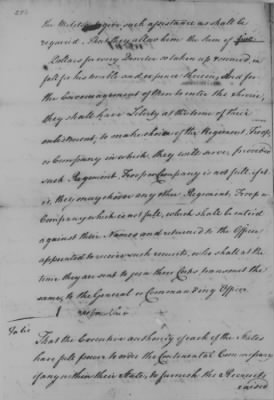 the Militia to give such assistance as shall be
required. That they allow him the sum of five
Dollars for every Deserter so taken up & secured in
full for his trouble and expence therein. And for
the Encouragement of Men to enter the Service,
they shall have Liberty at the time of their
enlistment, to make choice of the Regiment, Troop
or Company in which they will serve, provided
such Regiment, Troop or Company is not full, if it
is, they may choose any other Regiment, Troop or
Company which is not full, which shall be entered
against their Names and returned to the Officer
appointed to receive such recruits, who shall at the
time they are sent to join their Corps transmit the
same, to the General or Commanding Officer
That the Executive authority of each of the States
have full power to order the Continental Commissary
of any within their State, to furnish the Recruits
raised